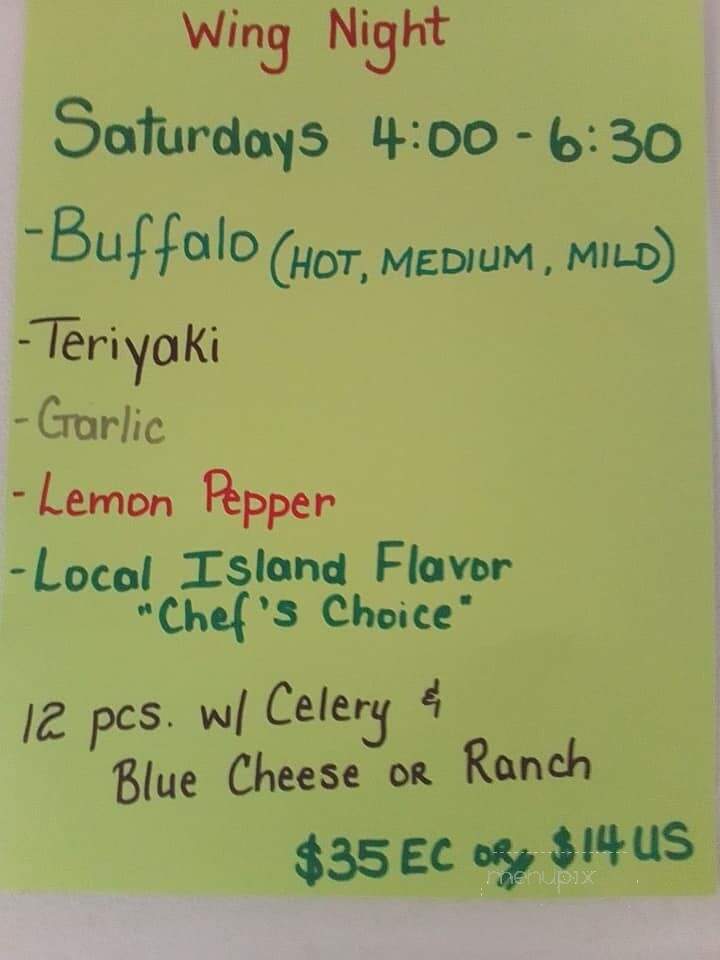 Wing Night
Saturdays 4:00 - 6:30
- Buffalo (HOT, MEDIUM, MILD)
- Teriyaki
- Garlic
- Lemon Pepper
- Local Island Flavor
"Chef's Choice"
12 pcs. w/ Celery &
Blue Cheese OR Ranch
$35 EC OR $14 US
menupix